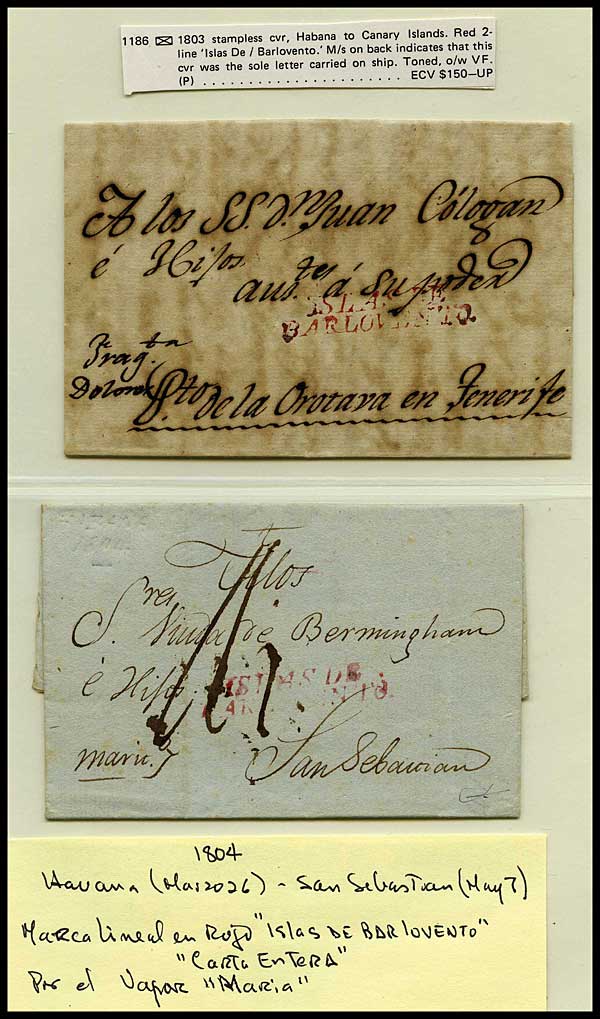 1186 1803 stampless cvr, Habana to Canary Islands. Red 2-
line 'Islas De / Barlovento.' M/s on back indicates that this
cvr was the sole letter carried on ship. Toned, o/w VF.
(P) . . . . . . . . . . . . . . . . . . . . . . . ECV $150—UP
A los SS. D.n Juan Cólogan
é Hijos
aus.tes á su poder
ISLAS DE
BARLOVENTO.
Frag.ta
Dolores
Pto de la Orotava en Tenerife
S.res
Viuda de Bermingham
é Hijos
ISLAS DE
BARLOVENTO.
San Sebastian
1804
Havana (Mar 2026) - San Sebastian (May 7)
Marca lineal en Rojo "Islas DE BARlOVENTO"
"Carta EnterA"
Por el Vapor "Maria"